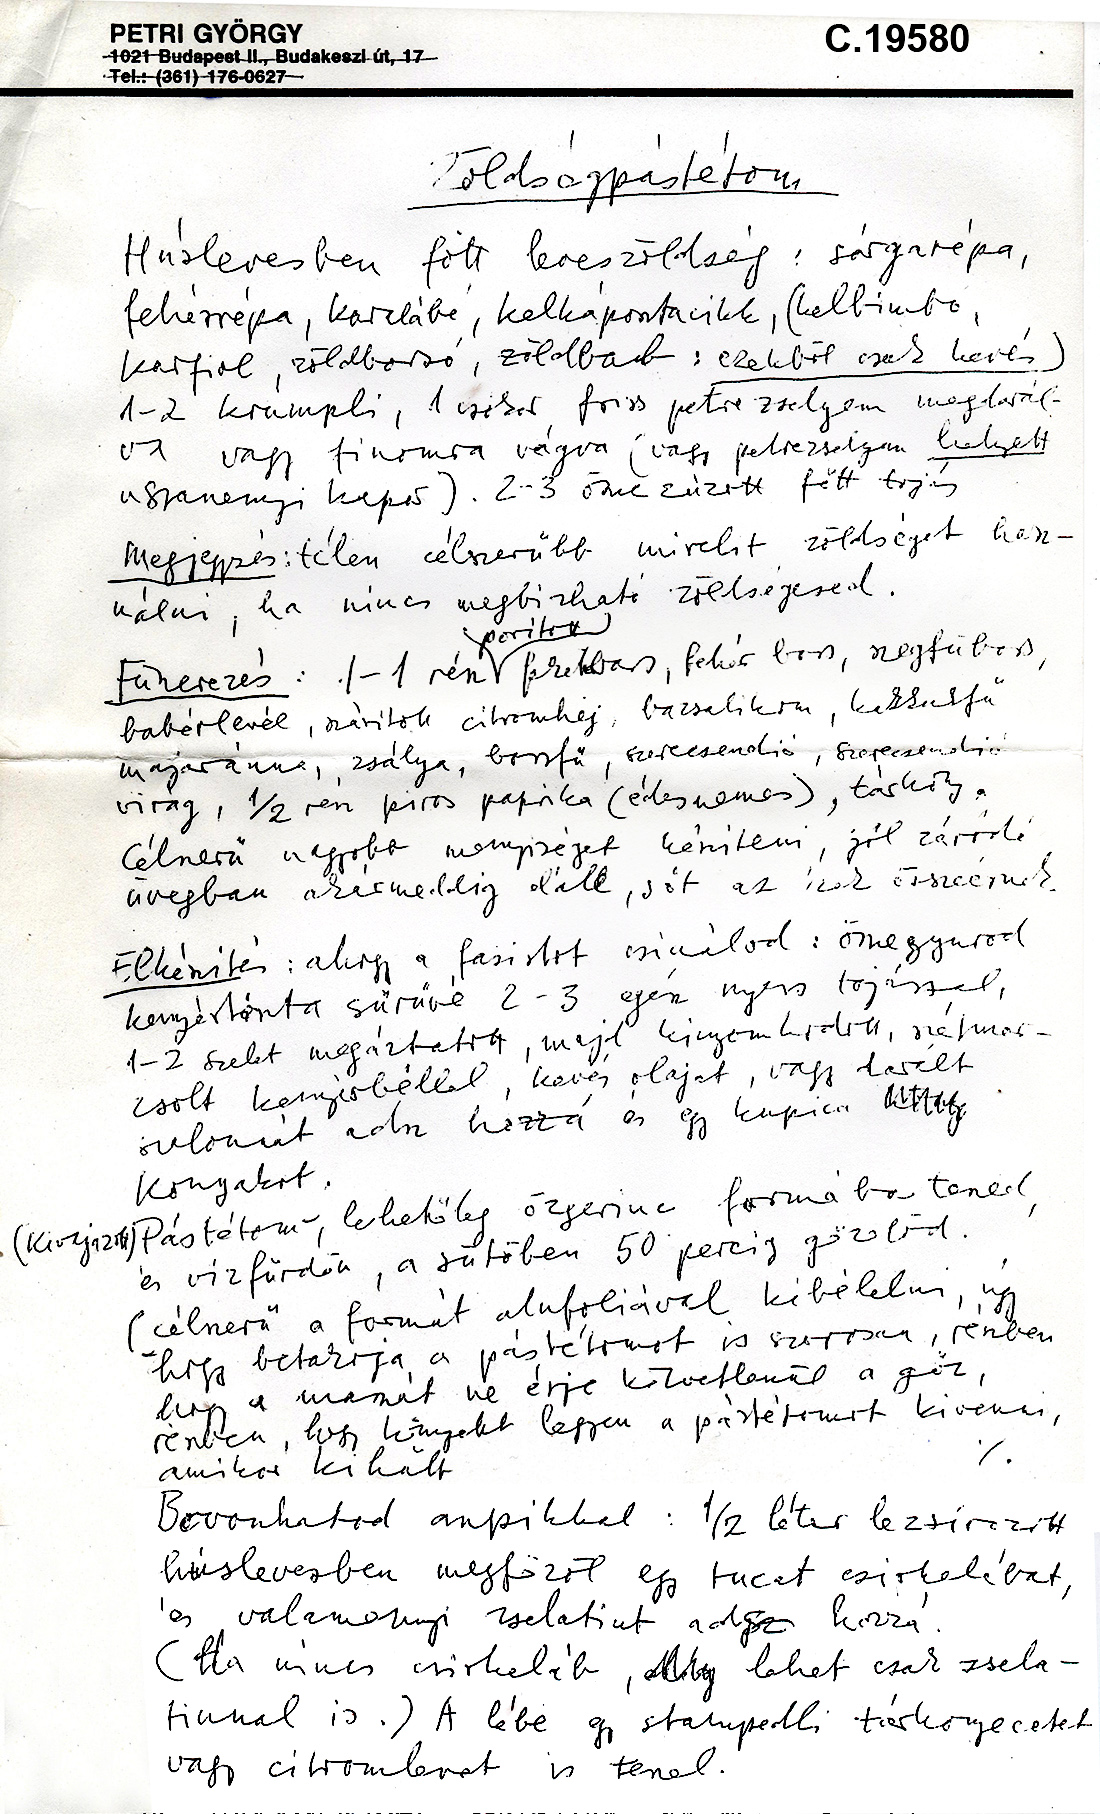 PETRI GYÖRGY
1021 Budapest II., Budakeszi út, 17
Tel.: (361) 176-0627
C.19580
Zöldségpástétom
Húslevesben főtt leveszöldség: sárgarépa,
fehérrépa, karalábé, kelkáposztacikk, (kelbimbó,
karfiol, zöldborsó, zöldbab: ezekből csak kevés)
1-2 krumpli, 1 csokor friss petrezselyem megdarál-
va vagy finomra vágva (vagy petrezselyem helyett
ugyanennyi kapor). 2-3 összezúzott főtt tojás
Megjegyzés: télen célszerűbb mirelit zöldséget hasz-
nálni, ha nincs megbízható zöldségesed.
porított
Fűszerezés: 1-1 rész feketebors, fehér bors, szegfűbors,
babérlevél, szárított citromhéj, bazsalikom, kakukfű
majoránna, zsálya, borsfű, szerecsendió, szerecsendió
virág, 1/2 rész piros paprika (édesnemes), tárkony.
Célszerű nagyobb mennyiséget készíteni, jól záródó
üvegban akármeddig eláll, sőt az ízek összeérnek.
Elkészítés: ahogy a fasírtot csinálod: összegyurod
kenyértészta sűrűvé 2-3 egész nyers tojással,
1-2 szelet megáztatott, majd kinyomkodott, szétmor-
zsolt kenyérbéllel, kevés olajat, vagy darált
szalonnát adsz hozzá és egy kupica
konyakot.
(Kivajazott) Pástétom, lehetőleg őzgerinc formába teszed,
és vízfürdőn, a sütőben 50 percig gőzölöd.
(célszerű a formát alufoliával kibélelni, úgy
hogy betakarja a pástétomot is szorosan, részben
hogy a masszát ne érje közvetlenül a gőz,
részben, hogy könnyebb legyen a pástétomot kivenni,
amikor kihült
./.
Bevonhatod aszpikkal: 1/2 liter lezsírozott
húslevesben megfőzöl egy tucat csirkelábat,
és valamennyi zselatint adsz hozzá.
(Ha nincs csirkeláb, lehet csak zsela-
tinnal is.) A lébe egy stampedli tárkonyecetet
vagy citromlevet is teszel.